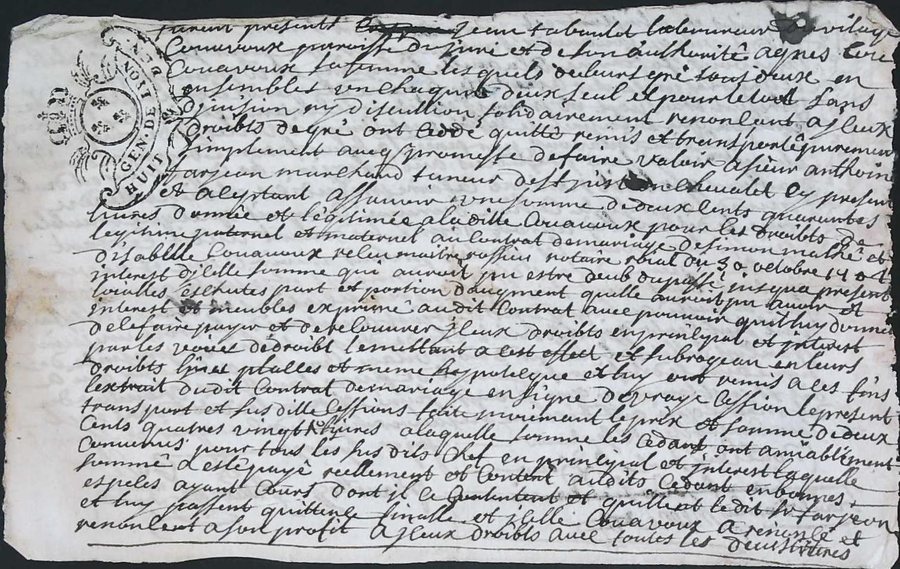 furent presents Jean taboulot laboureur du vilage
Couavoux paroisse du Juré et de son authorité agnes Cou
Couavoux sa femme lesquels de leurs gré tous deux en
ensembles un chaqun deux seul et pour le tout sans
Division ny discution solidairement renonceant a Jceux
Droibts de gré ont Cedé quitté remis et transporté purement
simplement avecq promesse de faire valoir a sieur anthoine
farjean marchand taneur de st just en chevalet Cy present
et aceptant assavoir une somme de deux Cents quarantes
livres donnée et legitimée a ladille Couavoux pour les droibts de
legitime paternel et maternel au Contrat de mariage de simon mathé et
d'isabelle Couavoux receu maitre notaire roial du 30 octobre
interest d'jcelle somme qui auroit pu estre deub du passé jusqua present
escheutes part et portion daugment quelle auroit pu avoir et
interest et meubles exprimé audit Contrat avec pouvoir quil luy donne
de se faire payer et de recouvrer Jceux droibts en principal et interest
par les voyes de droibt le mettant a cest effect et subrogean en leurs
droibts lieux places et meme hypoteque et luy ont remis a ces fins
lextrait dudit Contrat de mariage en signe de vraye Cession le present
transport et sus ditte Cessions faite moienant le prix et somme de deux
Cents quatres vingt livres a laquelle somme les Cedant ont amiablement
Convenus pour tous les sus dits Chef en principal et interest laquelle
somme a esté payé reellement et Content audits Cedant en bonnes
especes ayant Cours dont il se Contentent et quittent ledit sr farjeon
et luy passent quittence finalle et jcelle Couavoux a renoncé et
renonceant a son profit a Jceux droibts avec toutes les
NOTI
GEN.DE
HUIT